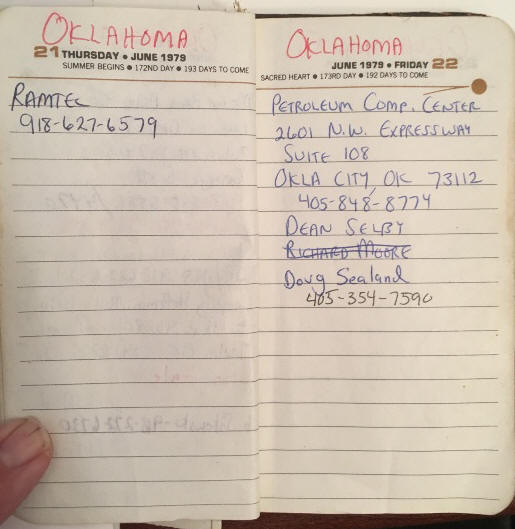 OKLAHOMA
21 THURSDAY • JUNE 1979
SUMMER BEGINS • 172ND DAY • 193 DAYS TO COME
RAMTEC
918-627-6579
OKLAHOMA
JUNE 1979 • FRIDAY 22
SACRED HEART • 173RD DAY • 192 DAYS TO COME
PETROLEUM COMP. CENTER
2601 N.W. EXPRESSWAY
SUITE 108
OKLA CITY, OK 73112
405-848-8774
DEAN SELBY
RICHARD MOORE
Doug Sealand
405-354-7590